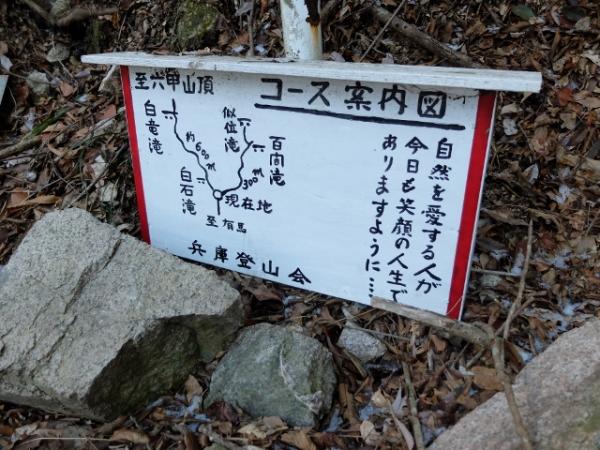 コース案内図
至六甲山頂
白竜滝
似位滝
百間滝
約600m
白石滝
300m
現在地
至有馬
兵庫登山会
自然を愛する人が
今日も笑顔の人生で
ありますように…